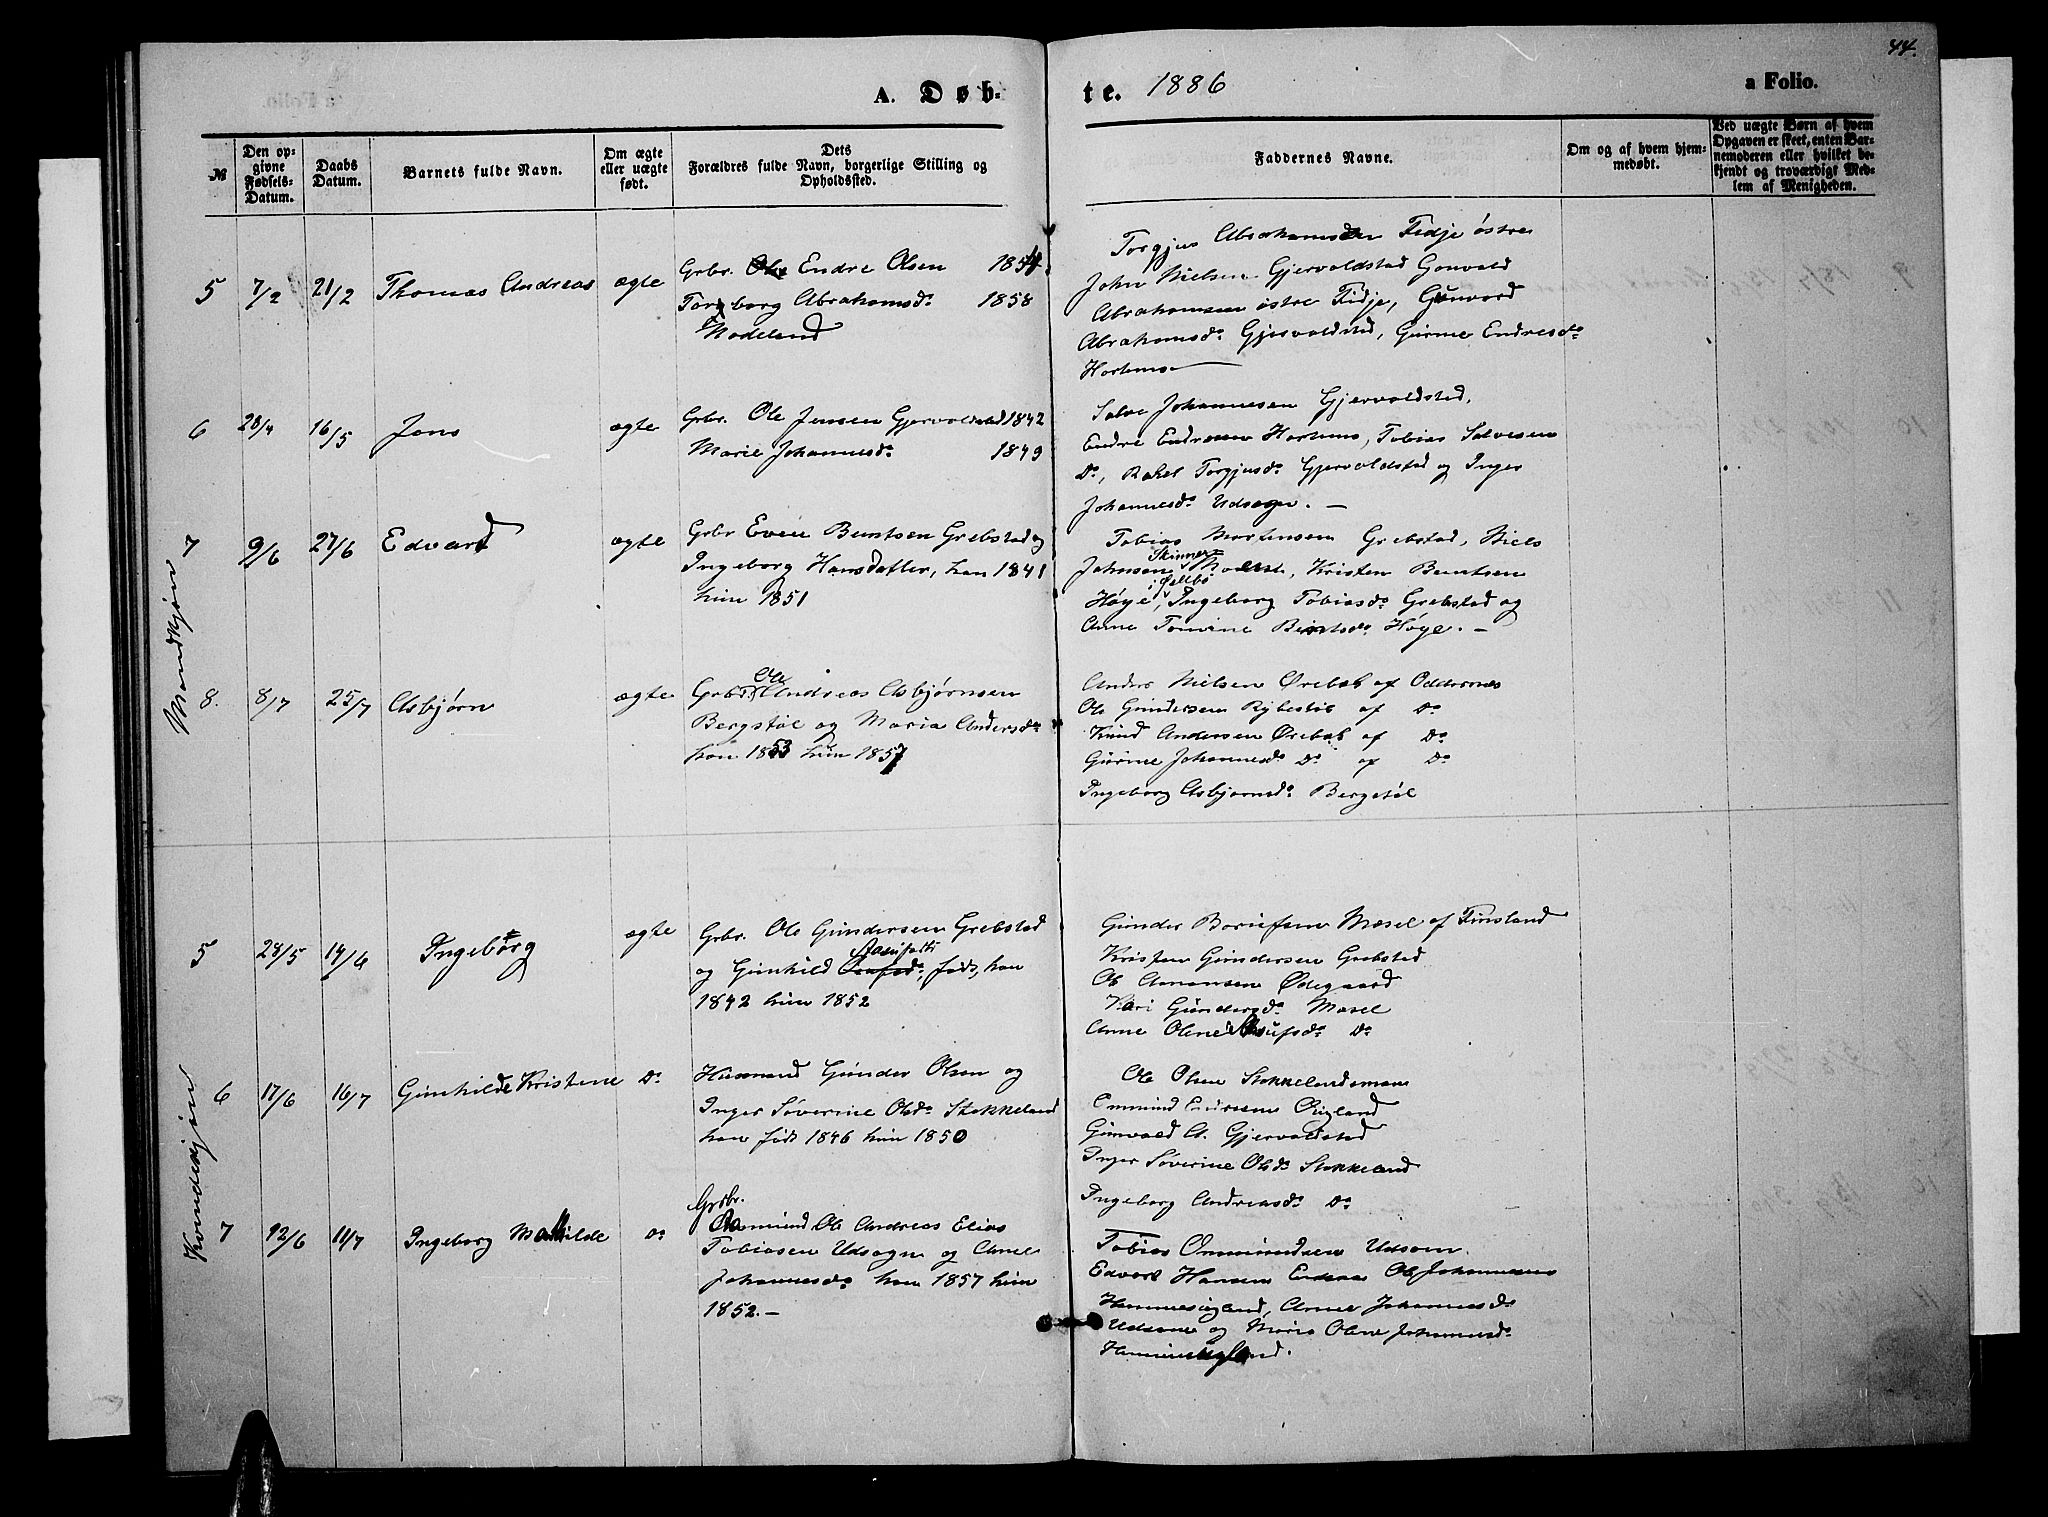 44.
A. Døb-
te. 1886
a Folio.
№
Den op-
givne
Fødsels-
Datum.
Daabs
Datum.
Barnets fulde Navn.
Om ægte
eller uægte
født.
Dets
Forældres fulde Navn, borgerlige Stilling og
Opholdssted.
Faddernes Navne.
Om og af hvem hjem-
medøbt.
Ved uægte Børn af hvem
Opgaven er skeet, enten Bar-
nemoderen eller hvilket be-
kjendt og troværdigt Med-
lem af Menigheden.
Mandkjøn
5 7/2 21/2 Thomas Andreas ægte
Grbr. Endre Olsen 1854
Torborg Abrahamsd. 1858
Modeland
Torgjus Abrahamsen Fidje østre
John Nielsen Gjervoldstad Gonvald
Abrahamsen østre Fidje, Gunvord
Abrahamsd. Gjervoldstad, Gurine Endresd.
Hortemo
6 28/4 16/5 Jens ægte
Grbr. Ole Jensen Gjervoldstad 1842
Marie Johannesd. 1849
Salve Johannesen Gjervoldstad,
Endre Endresen Hortemo, Tobias Salvesen
Do, Rakel Torgjusd. Gjervoldstad og Inger
Johannesd. Udsogn. —
7 9/6 27/6 Edvard ægte
Grbr Even Berntsen Grebstad og
Ingeborg Hansdatter, han 1841
hun 1851
Tobias Mortensen Grebstad, Niels
Johnsen Skinnes Moen, Kristen Berntsen
Høye i Øslebø, Ingeborg Tobiasd. Grebstad og
Anne Tomine Berntsd. Høye. —
8. 8/7 25/7 Asbjørn ægte
Grbr. Ole Andreas Asbjørnsen
Bergstøl og Maria Andersd.
han 1853 hun 1857
Anders Nielsen Ørebæk af Oddernes
Ole Gundersen Rybestøl af Do
Knud Andersen Ørebæk af Do
Gurine Johannesd. Do af Do
Ingeborg Asbjørnsd. Bergstøl
Kvindekjøn
5 28/5 14/6 Ingeborg ægte
Grbr. Ole Gundersen Grebstad
og Gunhild Aanifsdtr født, han
1842 hun 1852
Gunder Mosel af Finsland
Kristen Gundersen Grebstad
Ole Amonsen Ødegaard
Kari Gundersd. Mosel
Anne Oline Do
6 17/6 16/7 Gunhilde Kristene Do
Husmand Gunder Olsen og
Inger Søverine Olsd. Stokkeland
han født 1846 hun 1850
Ole Olsen Stokkelandsmoen
Ommund Endresen
Gunvald A. Gjervoldstad
Inger Søverine Olsd. Stokkeland
Ingeborg Andreasd. Do
7 12/6 11/7 Ingeborg Mathilde Do
Grbr.
Ole Andreas Elias
Tobiasen Udsogn og Anne
Johannesd. han 1857 hun
1852. —
Tobias Ommundsen Udsogn
Edvart Hansen Ole Johannesen
Hommeriigland, Anne Johannesd.
Udsogn og Maria Oline Johannesd.